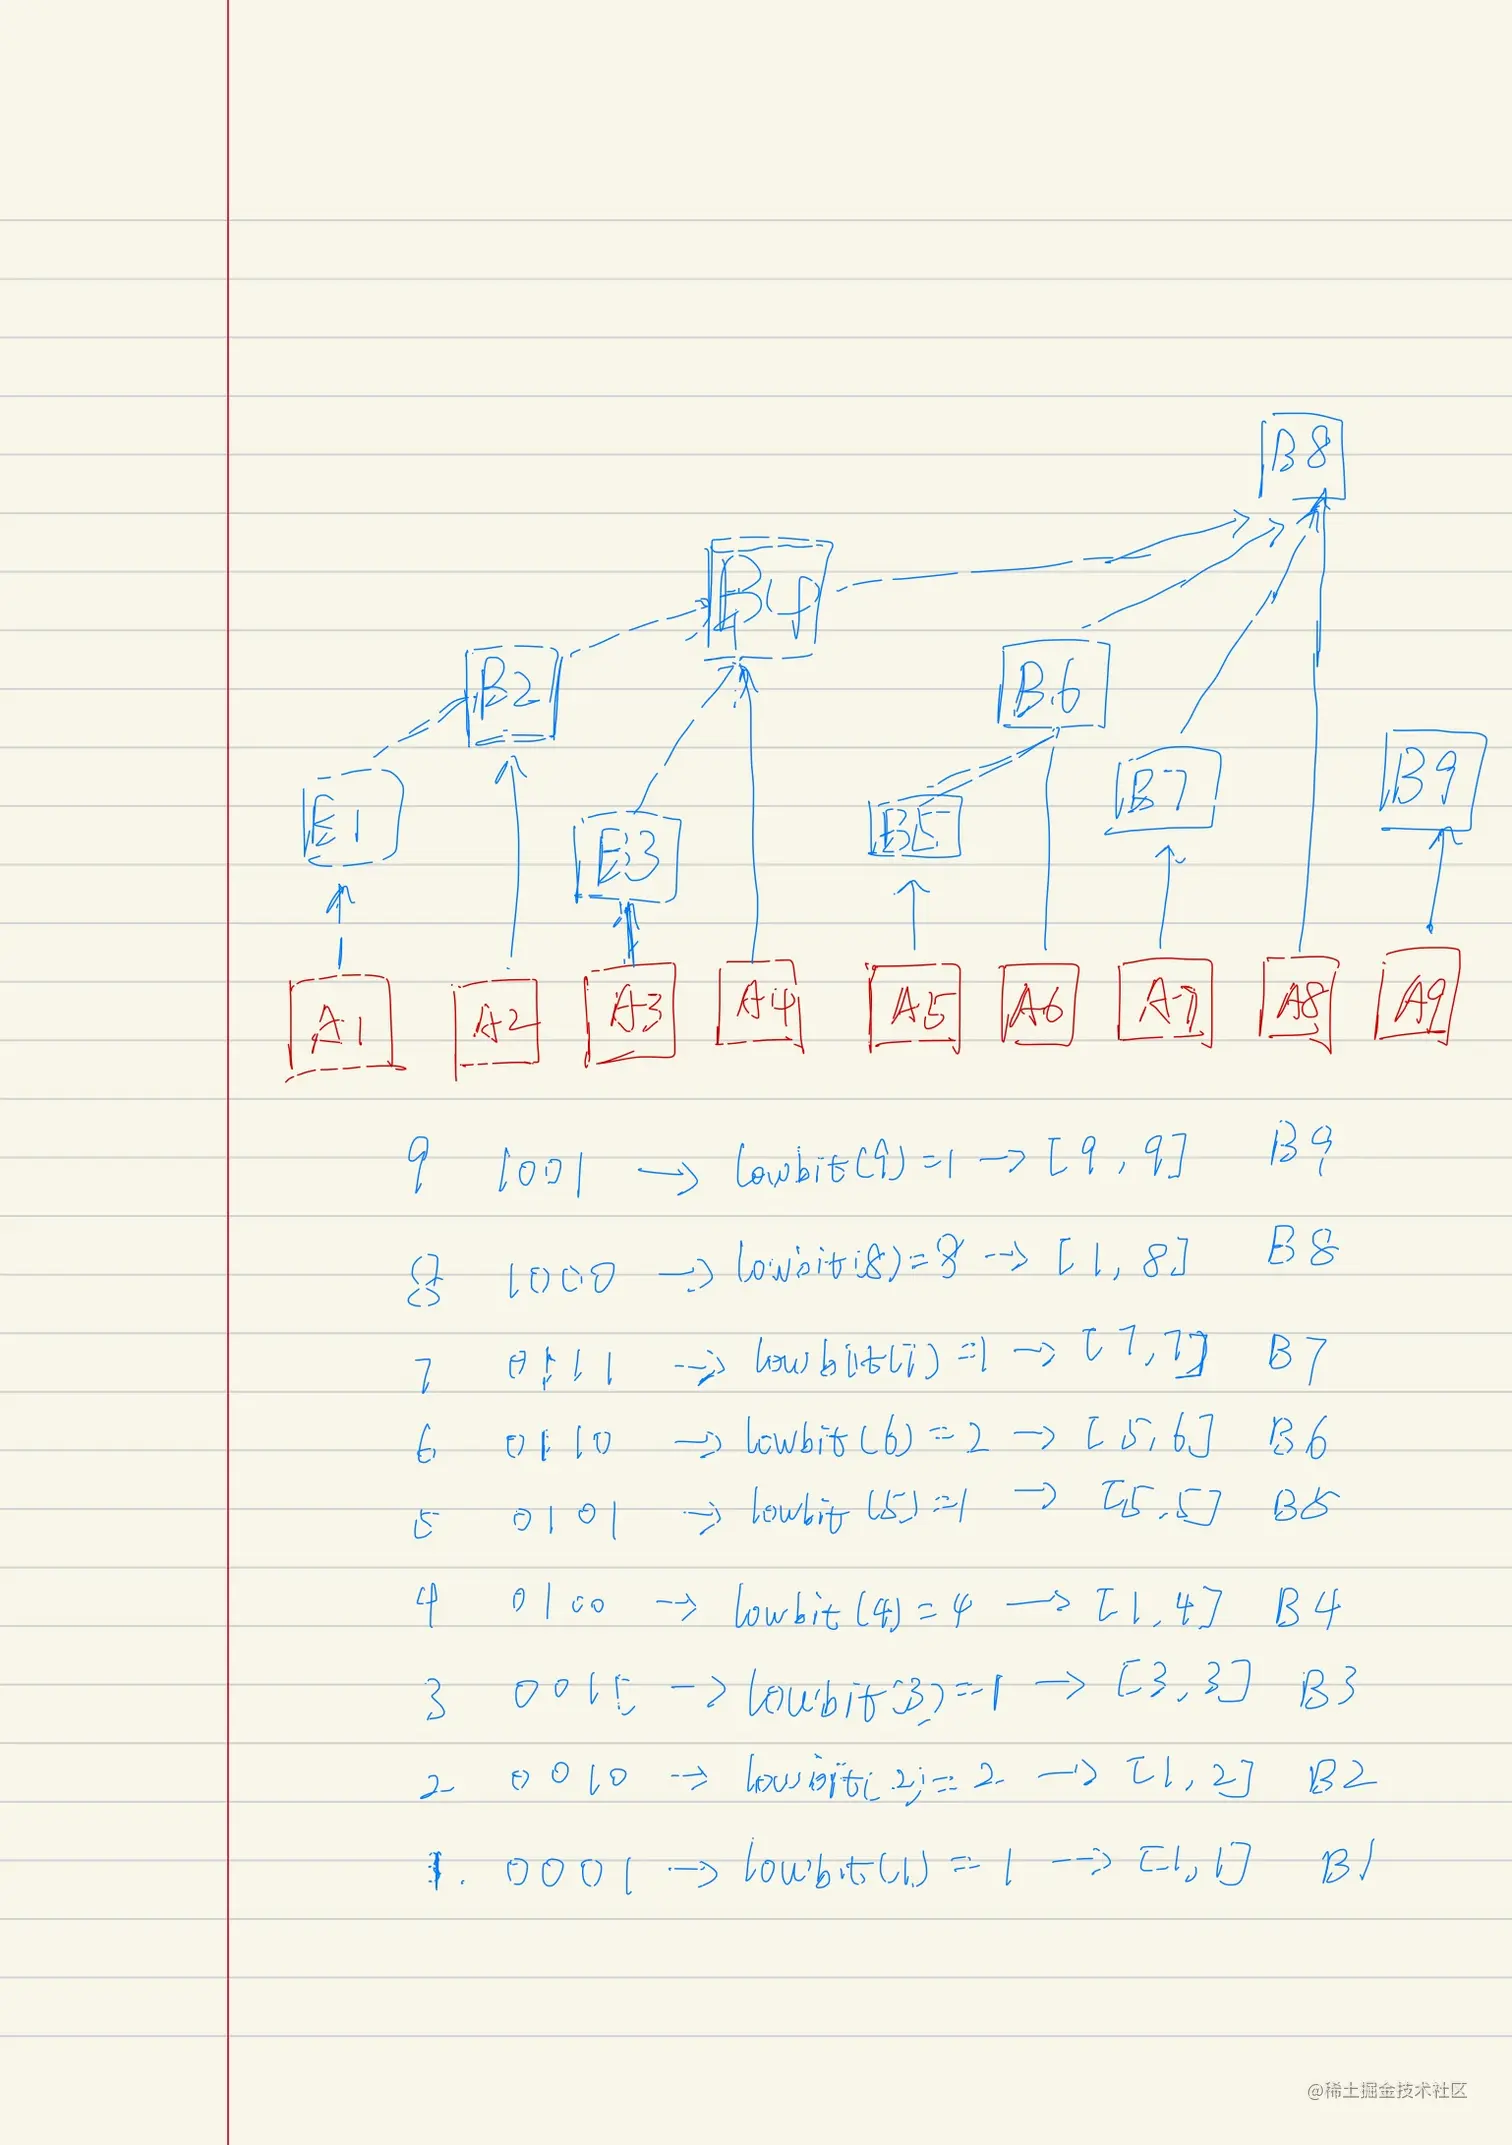 B8
B4
B2 B6
B1 B3 B5 B7 B9
A1 A2 A3 A4 A5 A6 A7 A8 A9
9 1001 → lowbit(9)=1 → [9,9] B9
8 1000 → lowbit(8)=8 → [1,8] B8
7 0111 → lowbit(7)=1 → [7,7] B7
6 0110 → lowbit(6)=2 → [5,6] B6
5 0101 → lowbit(5)=1 → [5,5] B5
4 0100 → lowbit(4)=4 → [1,4] B4
3 0011 → lowbit(3)=1 → [3,3] B3
2 0010 → lowbit(2)=2 → [1,2] B2
1. 0001 → lowbit(1)=1 → [1,1] B1
@稀土掘金技术社区